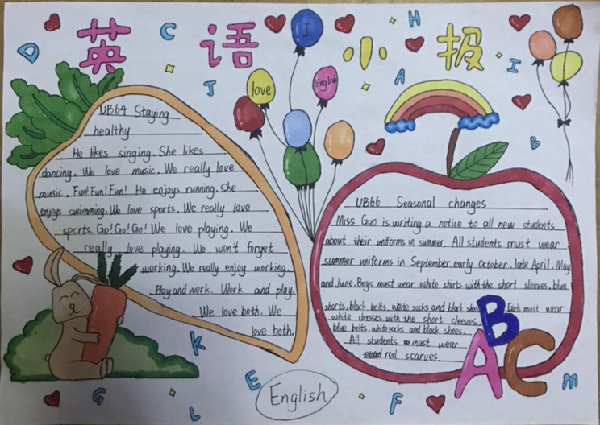 英语小报
D
C
H
I
J
A
I
b
I
love
English
U3B4 Staying
healthy
He likes singing. She likes
dancing. We love music. We really love
music. Fun! Fun! Fun! He enjoys running. She
enjoys swimming. We love sports. We really love
sports. Go! Go! Go! We love playing. We
really love playing. We won't forget
working. We really enjoy working.
Play and work. Work and play.
We love both. We
love both.
U3B6 Seasonal changes
Miss Guo is writing a notice to all new students
about their uniforms in summer. All students must wear
summer uniforms in September, early October, late April, May
and June. Boys must wear white shirts with the short sleeves, blue
shorts, black belts, white socks and black shoes. Girls must wear
white dresses with the short sleeves,
blue belts, white socks and black shoes.
All students must wear
red scarves.
ABC
K
G
L
E
F
M
English